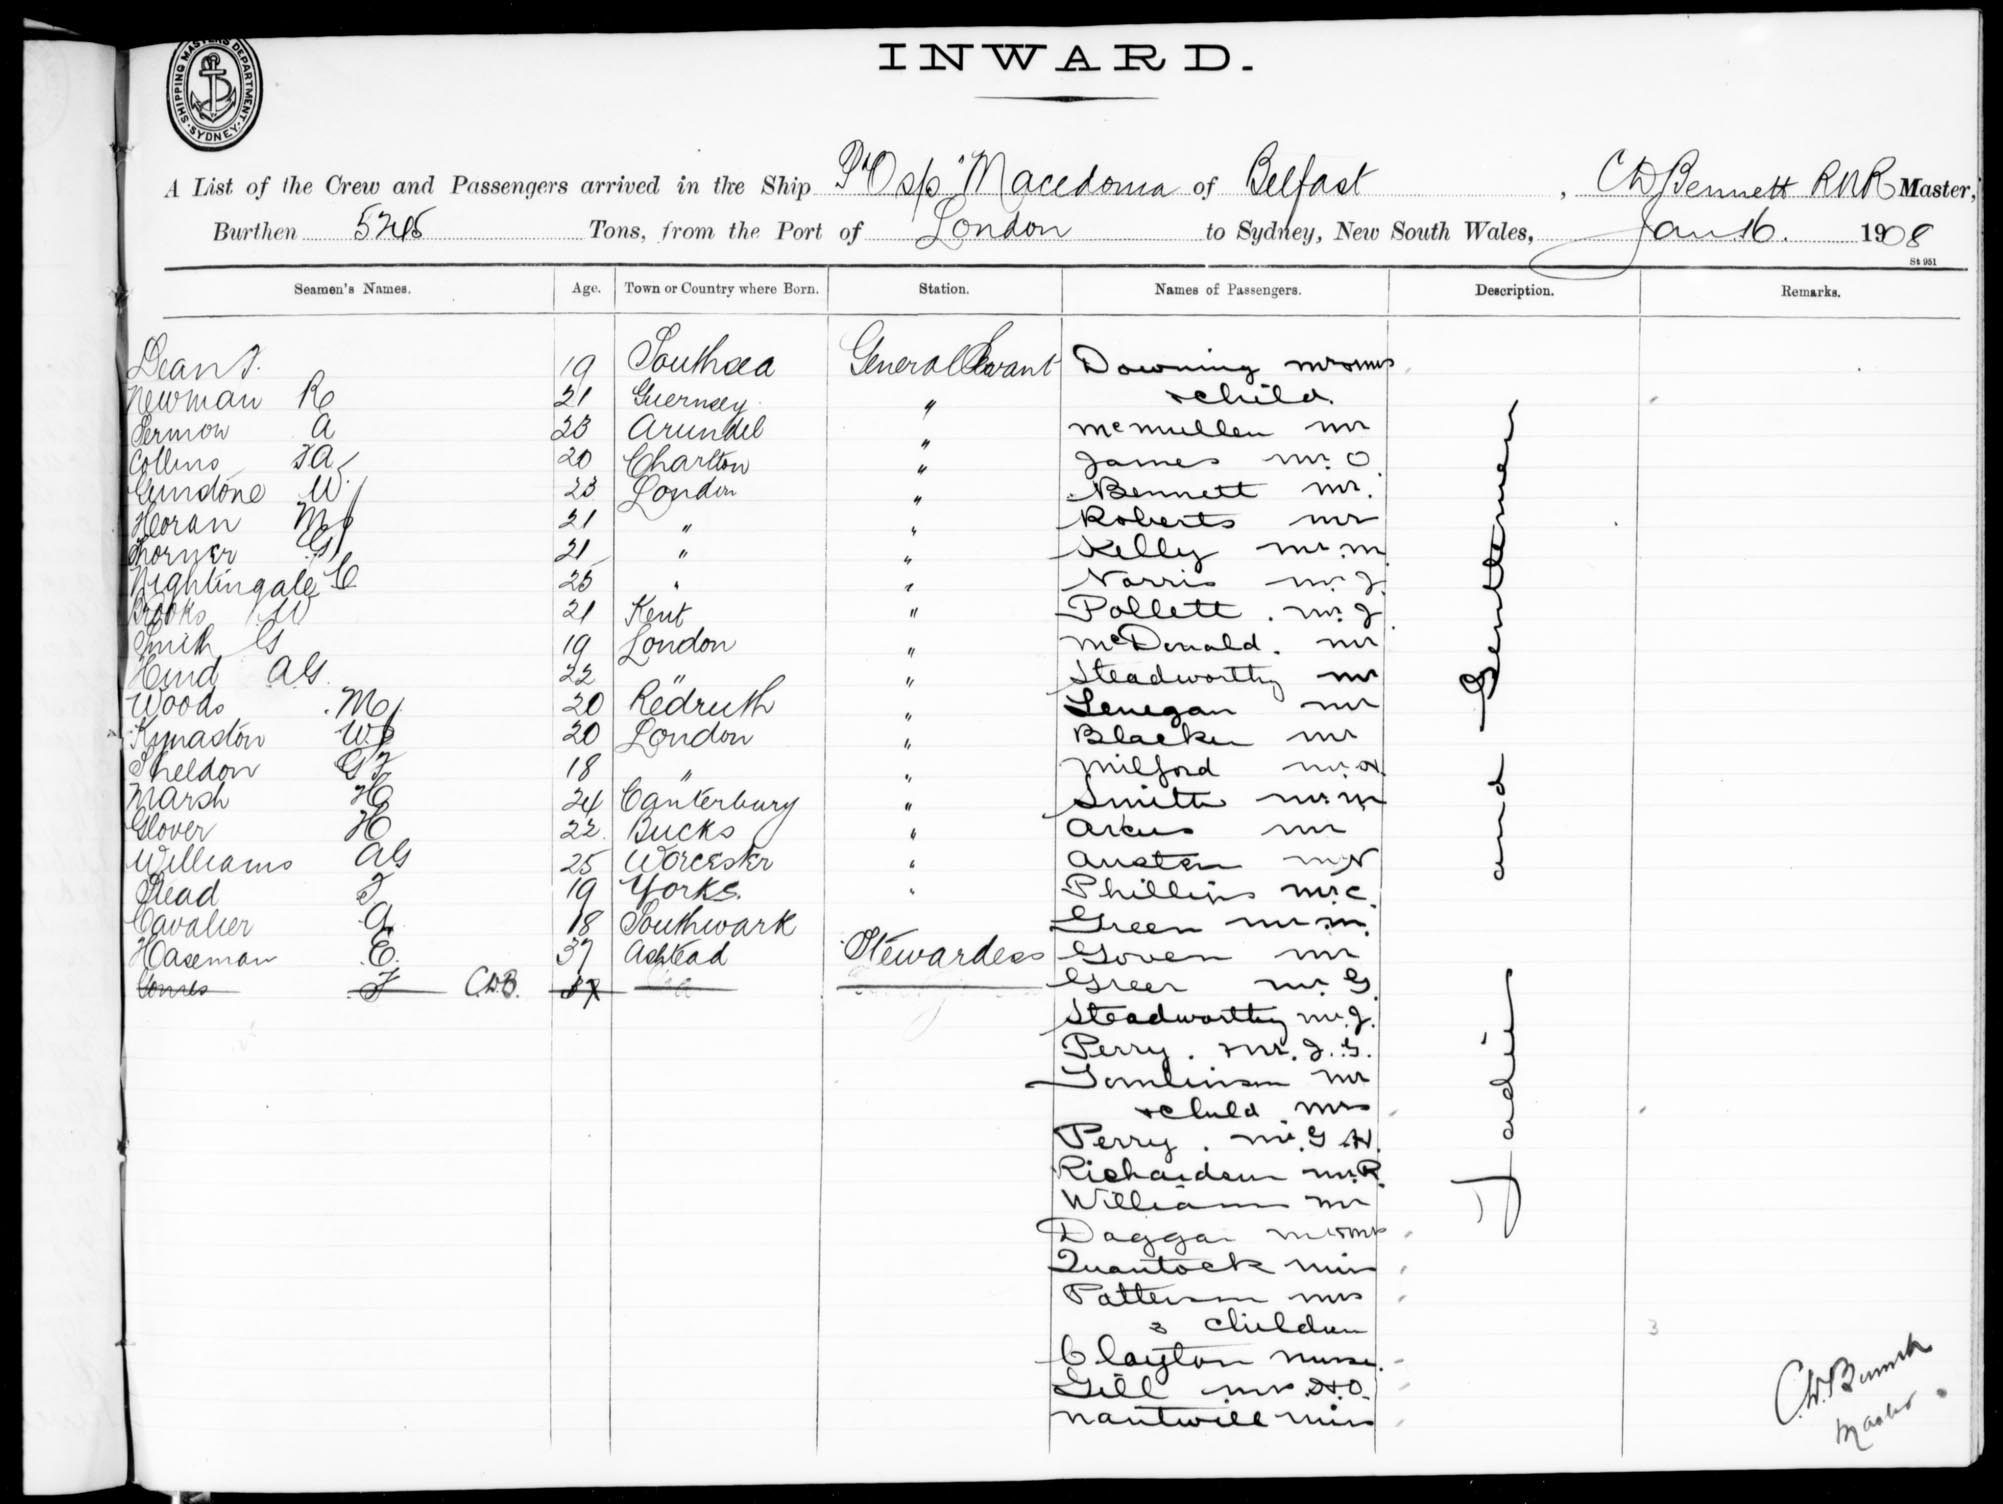 INWARD.
SHIPPING MASTERS DEPARTMENT
SYDNEY
A List of the Crew and Passengers arrived in the Ship P&O s/s "Macedonia of Belfast, C D Bennett RNR Master,
Burthen 5245 Tons, from the Port of London to Sydney, New South Wales, Jan 16. 1908
St 951
Seamen's Names. Age. Town or Country where Born. Station. Names of Passengers. Description. Remarks.
Dean J. 19 Southsea General Servant Downing mr & mrs
Newman R 21 Guernsey " & child
A 23 Arundel " McMullen mr
Collins F A 20 Charlton " James mr. O
W 23 London " Bennett mr.
Horan M J 21 " " Roberts mr
Thorner G 21 " " Kelly mr. m
Nightingale C 25 " " Norris mr. J
Brooks W 21 Kent " Pollett. mr. J
Smith G 19 London " McDonald. mr
Hind A G 22 " " Steadworthy mr
Woods M 20 Redruth " Lenegan mr
Kynaston W J 20 London " Blacker mr
Sheldon G F 18 " " Milford mr.
Marsh H 24 Canterbury " Smith mr. m
Glover H 22 Bucks " mr
Williams A G 25 Worcester " Austen mr
Stead F 19 Yorks. " Phillips mr. C.
Cavalier A. 18 Southwark Green mr. m.
Haseman E. 37 Ashtead Stewardess Goven mr
F C.D.B. 37 Greer mr. G.
Steadworthy mr. J.
Perry. mr. J. G.
Tomlinson mr
& child mrs
Perry. mr. G H.
Richardson mr. R.
Williams mr
Daggar mr & mrs
Quantock miss
Patterson mrs
3 children 3
Clayton nurse.
Gill mrs. H. O.
Nantwill miss
Ladies and Gentlemen
C.D. Bennett
Master